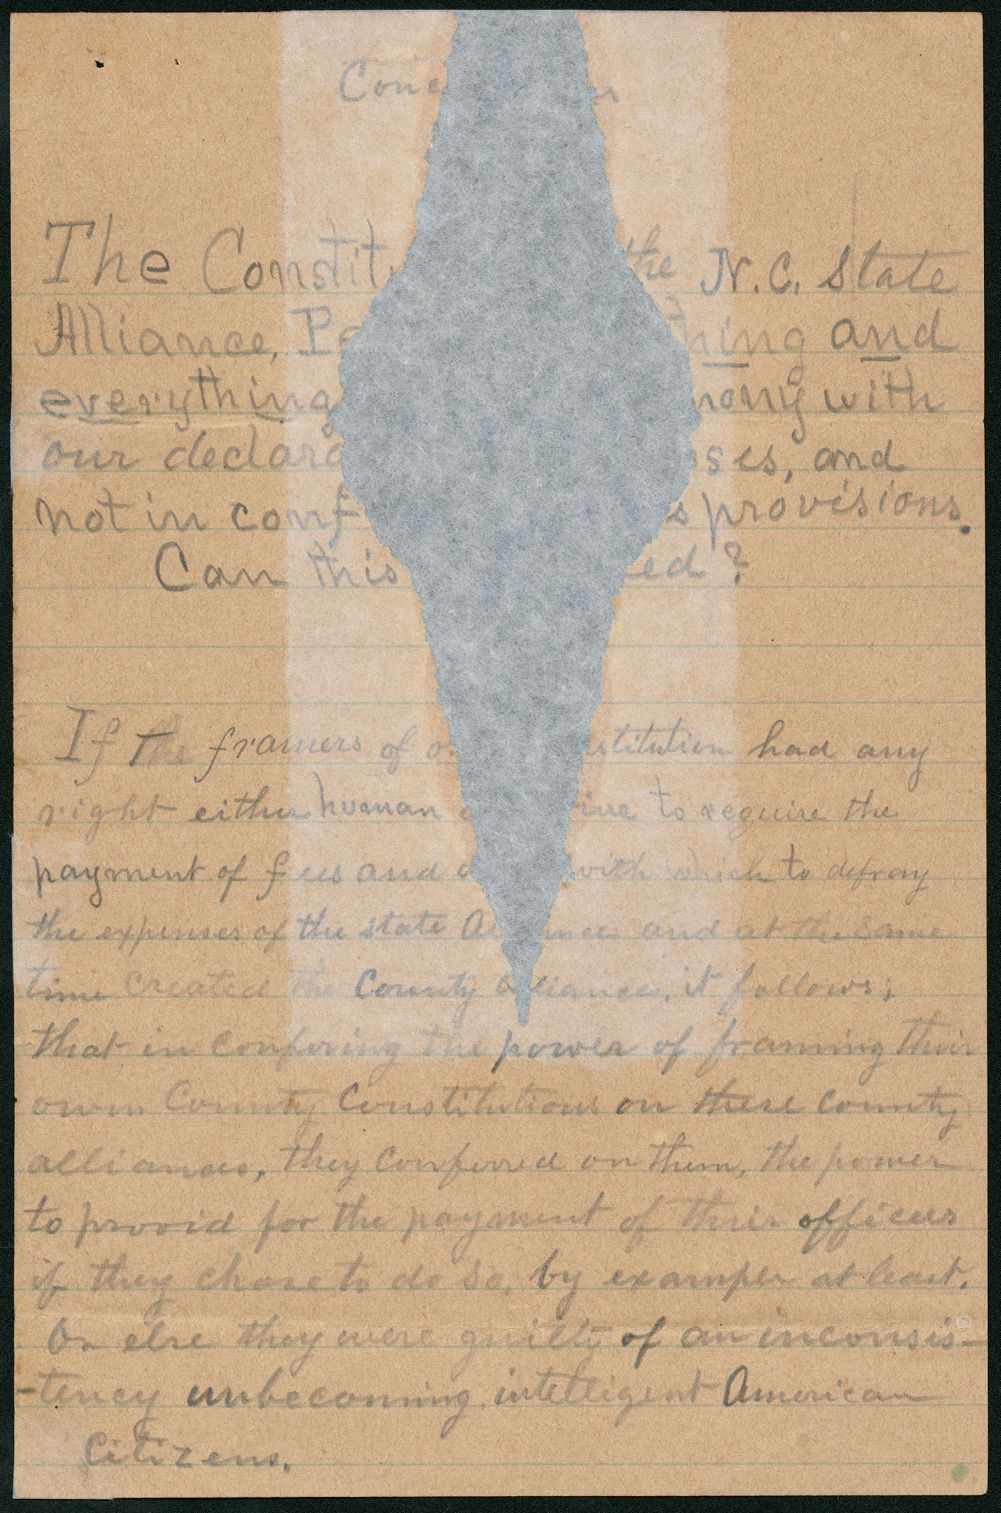 Conc
The Constitu the N.C. State
Alliance, Pe thing and
everything mony with
our declara ses, and
not in conf s provisions.
Can this ed?
If the framers of o stitution had any
right either human ine to require the
payment of fees and d with which to defray
the expenses of the state Al ances and at the same
time created the County alliances, it follows;
that in confering the power of framing their
own County Constitutions on these county
alliances, they conferred on them, the power
to provid for the payment of their officers
if they chose to do so, by exampler at least.
Or else they were guilty of an inconsis-
-tency unbecoming intelligent American
Citizens.